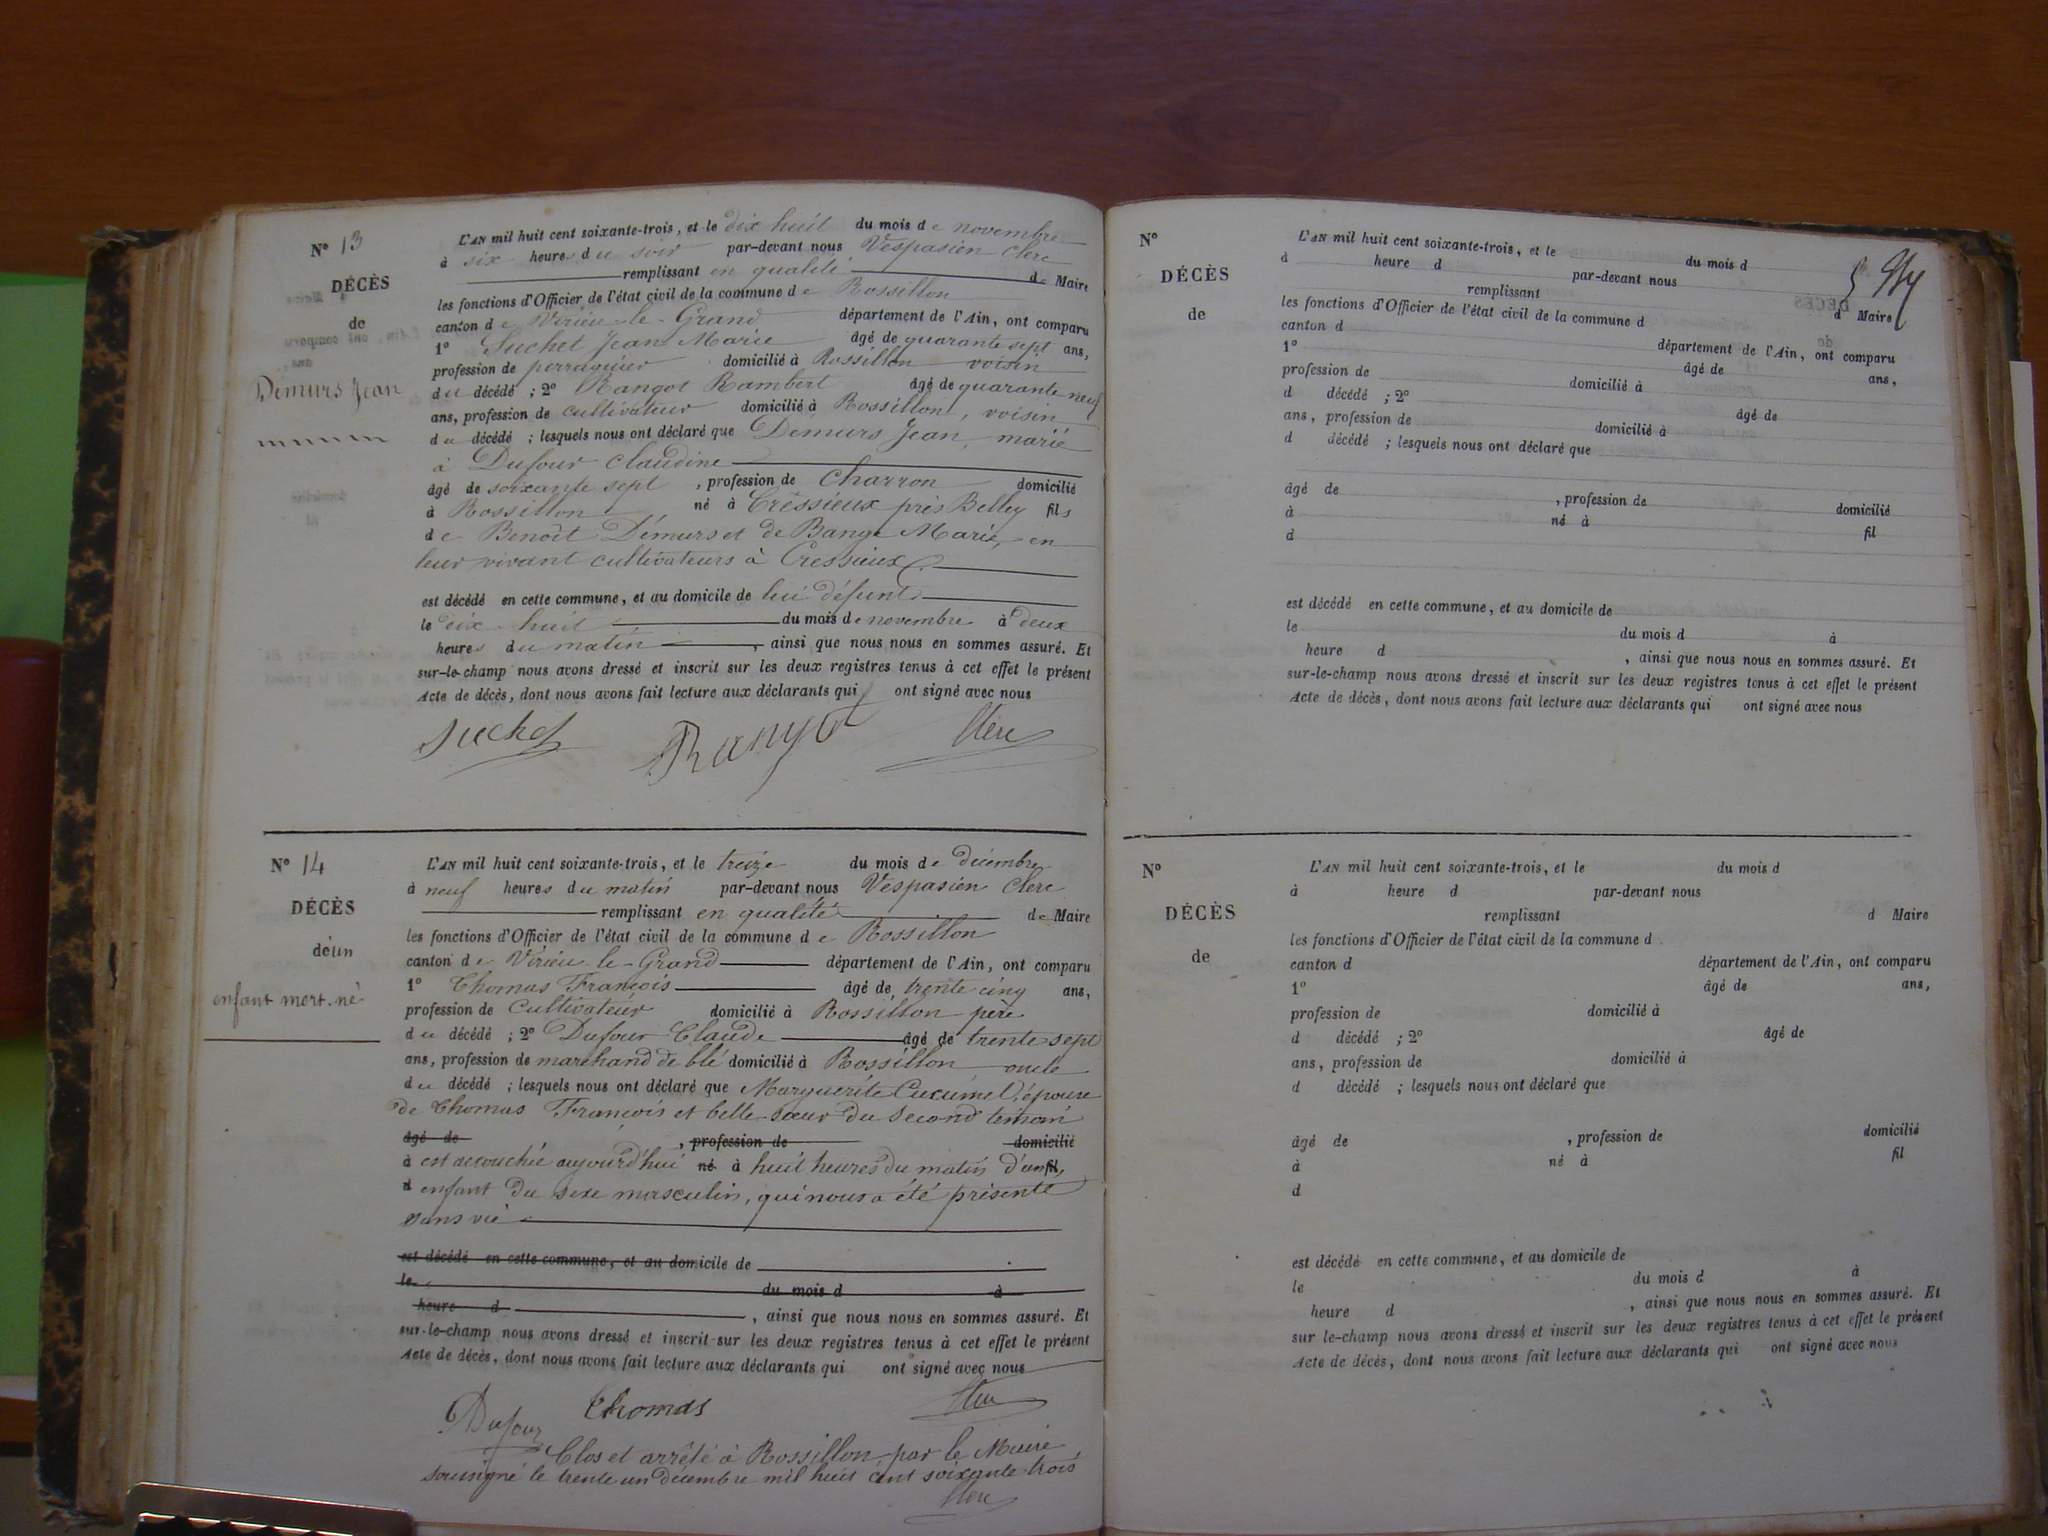 N° 13
DÉCÈS
de
Démurs Jean
L'AN mil huit cent soixante-trois, et le dix huit du mois de novembre
à six heures du soir par-devant nous Vespasien Clerc
remplissant en qualité de Maire
les fonctions d'Officier de l'état civil de la commune de Rossillon
canton de Virieu-le-Grand département de l'Ain, ont comparu
1° Suchet Jean Marie âgé de quarante sept ans,
profession de perruquier domicilié à Rossillon voisin
du décédé ; 2° Rangot Rambert âgé de quarante neuf
ans, profession de cultivateur domicilié à Rossillon, voisin
du décédé ; lesquels nous ont déclaré que Démurs Jean, marié
à Dufour Claudine
âgé de soixante sept , profession de Charron domicilié
à Rossillon né à Cressieux près Belley fils
de Benoît Démurs et de Bange Marie, en
leur vivant cultivateurs à Cressieux
est décédé en cette commune, et au domicile de lui défunt
le dix-huit du mois de novembre à deux
heures du matin , ainsi que nous nous en sommes assuré. Et
sur-le-champ nous avons dressé et inscrit sur les deux registres tenus à cet effet le présent
Acte de décès, dont nous avons fait lecture aux déclarants qui ont signé avec nous
Suchet Rangot Clerc
N° 14
DÉCÈS
de un
enfant mort-né
L'AN mil huit cent soixante-trois, et le treize du mois de décembre
à neuf heures du matin par-devant nous Vespasien Clerc
remplissant en qualité de Maire
les fonctions d'Officier de l'état civil de la commune de Rossillon
canton de Virieu-le-Grand département de l'Ain, ont comparu
1° Thomas François âgé de trente cinq ans,
profession de Cultivateur domicilié à Rossillon père
du décédé ; 2° Dufour Claude âgé de trente sept
ans, profession de marchand de blé domicilié à Rossillon oncle
du décédé ; lesquels nous ont déclaré que Marguerite Cucumel, épouse
de Thomas François et belle-sœur du second témoin
âgé de , profession de domicilié
à est accouchée aujourd'hui né à huit heures du matin d'un fil
d enfant du sexe masculin, qui nous a été présenté
sans vie
est décédé en cette commune, et au domicile de
le du mois d à
heure d , ainsi que nous nous en sommes assuré. Et
sur-le-champ nous avons dressé et inscrit sur les deux registres tenus à cet effet le présent
Acte de décès, dont nous avons fait lecture aux déclarants qui ont signé avec nous
Dufour Thomas Clerc
Clos et arrêté à Rossillon par le Maire
soussigné le trente un décembre mil huit cent soixante-trois
Clerc
N°
DÉCÈS
de
L'AN mil huit cent soixante-trois, et le du mois d
à heure d par-devant nous
remplissant d Maire
les fonctions d'Officier de l'état civil de la commune d
canton d département de l'Ain, ont comparu
1° âgé de ans,
profession de domicilié à
d décédé ; 2° âgé de
ans, profession de domicilié à
d décédé ; lesquels nous ont déclaré que
âgé de , profession de domicilié
à né à fil
d
est décédé en cette commune, et au domicile de
le du mois d à
heure d , ainsi que nous nous en sommes assuré. Et
sur-le-champ nous avons dressé et inscrit sur les deux registres tenus à cet effet le présent
Acte de décès, dont nous avons fait lecture aux déclarants qui ont signé avec nous
N°
DÉCÈS
de
L'AN mil huit cent soixante-trois, et le du mois d
à heure d par-devant nous
remplissant d Maire
les fonctions d'Officier de l'état civil de la commune d
canton d département de l'Ain, ont comparu
1° âgé de ans,
profession de domicilié à
d décédé ; 2° âgé de
ans, profession de domicilié à
d décédé ; lesquels nous ont déclaré que
âgé de , profession de domicilié
à né à fil
d
est décédé en cette commune, et au domicile de
le du mois d à
heure d , ainsi que nous nous en sommes assuré. Et
sur le-champ nous avons dressé et inscrit sur les deux registres tenus à cet effet le présent
Acte de décès, dont nous avons fait lecture aux déclarants qui ont signé avec nous